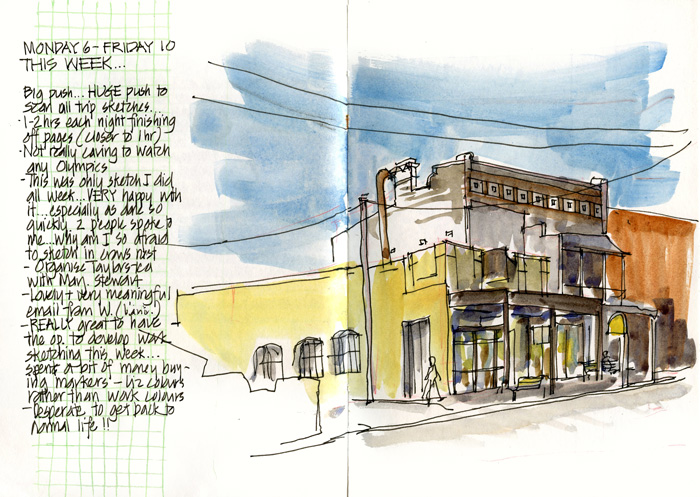 MONDAY 6 - FRIDAY 10
THIS WEEK...
Big push... HUGE push to
scan all trip sketches...
-1-2hrs each night finishing
off pages (closer to 1hr)
-Not really caving to watch
any Olympics
-This was only sketch I did
all week... VERY happy with
it... especially as done so
quickly. 2 people spoke to
me... why am I so afraid
to sketch in crows nest
- Organise Taylors tea
with Man. Stewart
-Lovely + very meaningful
email from W.
-REALLY great to have
the op. to develop work
sketching this week...
spent a bit of money buy-
ing markers - Liz colours
rather than work colours
-Desperate to get back to
normal life!!